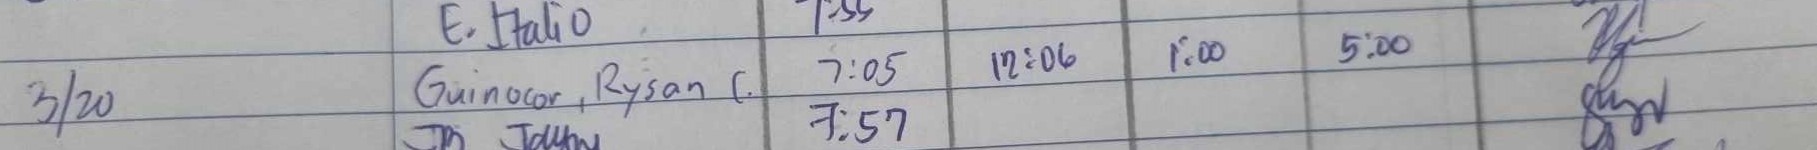 E. Italio 7:55
3/20 Guinocor, Rysan C. 7:05 12:06 1:00 5:00
7:57